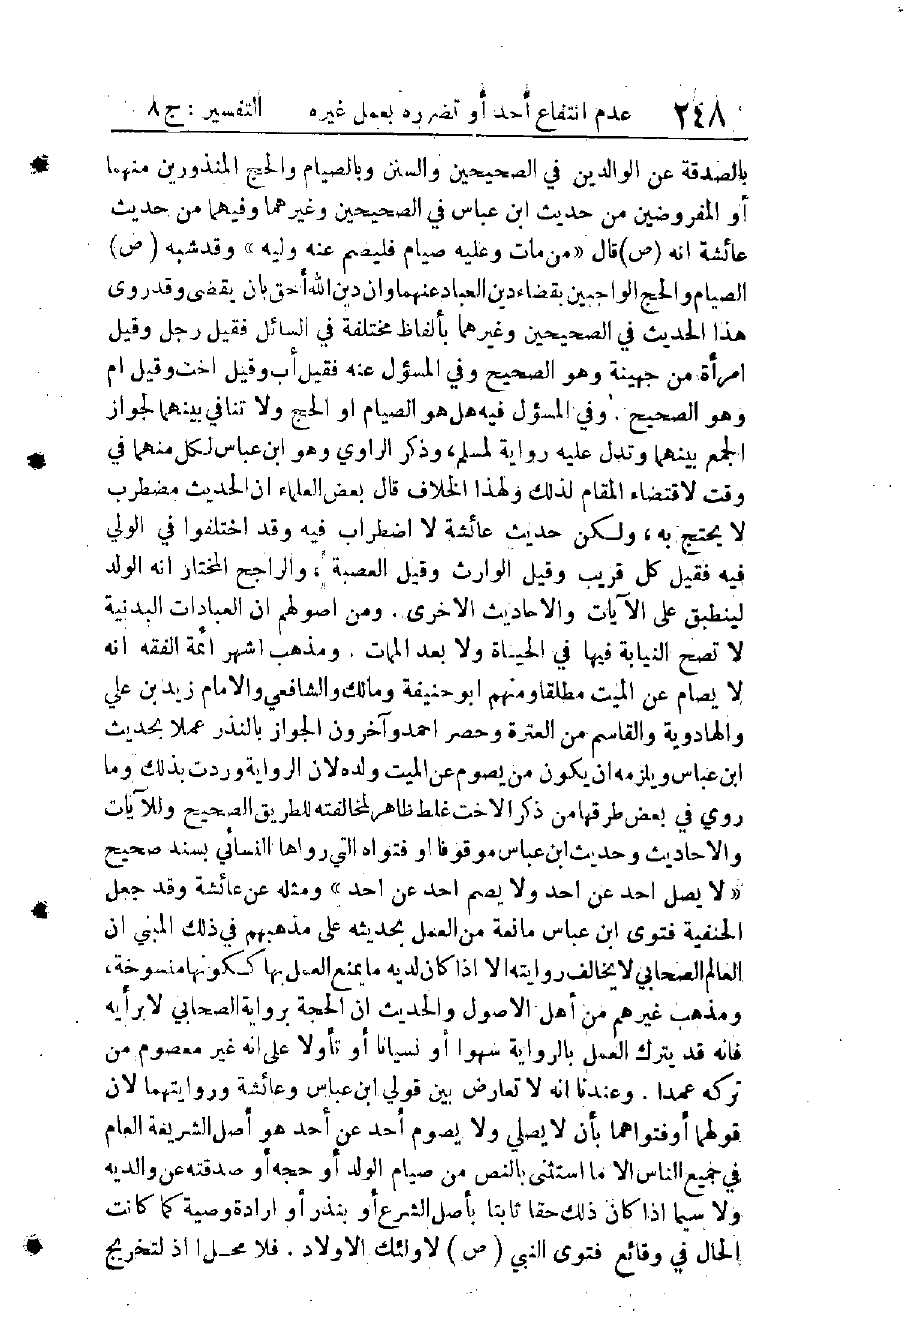 ٢٤٨ عدم انتفاع أحد أو تضرره بعمل غيره التفسير : ج ٨
بالصدقة عن الوالدين في الصحيحين والسنن وبالصيام والحج المنذورين منهما
أو المفروضين من حديث ابن عباس في الصحيحين وغيرهما وفيهما من حديث
عائشة انه (ص) قال « من مات وعليه صيام فليصم عنه وليه » وقد شبه (ص)
الصيام والحج الواجبين بقضاء دين العباد عنهما وان دين الله أحق بان يقضى وقد روى
هذا الحديث في الصحيحين وغيرهما بألفاظ مختلفة في السائل فقيل رجل وقيل
امرأة من جهينة وهو الصحيح وفي المسؤل عنه فقيل أب وقيل اخت وقيل ام
وهو الصحيح . وفي المسؤل فيه هل هو الصيام او الحج ولا تنافي بينهما لجواز
الجمع بينهما وتدل عليه رواية لمسلم، وذكر الراوي وهو ابن عباس لكل منهما في
وقت لاقتضاء المقام لذلك ولهذا الخلاف قال بعض العلماء ان الحديث مضطرب
لا يحتج به، ولكن حديث عائشة لا اضطراب فيه وقد اختلفوا في الولي
فيه فقيل كل قريب وقيل الوارث وقيل العصبة، والراجح المختار انه الولد
لينطبق على الآيات والاحاديث الاخرى. ومن اصولهم ان العبادات البدنية
لا تصح النيابة فيها في الحياة ولا بعد الممات . ومذهب اشهر ائمة الفقه انه
لا يصام عن الميت مطلقا ومنهم ابو حنيفة ومالك والشافعي والامام زيد بن علي
والهادوية والقاسم من العترة وحصر احمد وآخرون الجواز بالنذر عملا بحديث
ابن عباس ويلزمه ان يكون من يصوم عن الميت ولده لان الرواية وردت بذلك وما
روي في بعض طرقها من ذكر الاخت غلط ظاهر لمخالفته للطريق الصحيح وللآيات
والاحاديث وحديث ابن عباس موقوفا او فتواه التي رواها النسائي بسند صحيح
« لا يصل احد عن احد ولا يصم احد عن احد » ومثله عن عائشة وقد جعل
الحنفية فتوى ابن عباس مانعة من العمل بحديثه على مذهبهم في ذلك المبني ان
العالم الصحابي لا يخالف روايته الا اذا كان لديه ما يمنع العمل بها ككونها منسوخة،
ومذهب غيرهم من أهل الاصول والحديث ان الحجة برواية الصحابي لا برأيه
فانه قد يترك العمل بالرواية سهوا أو نسيانا أو تأولا على انه غير معصوم من
تركه عمدا . وعندنا انه لا تعارض بين قولي ابن عباس وعائشة وروايتهما لان
قولهما أو فتواهما بأن لا يصلي ولا يصوم أحد عن أحد هو أصل الشريعة العام
في جميع الناس الا ما استثنى بالنص من صيام الولد أو حجه أو صدقته عن والديه
ولا سيما اذا كان ذلك حقا ثابتا بأصل الشرع أو بنذر أو ارادة وصية كما كانت
الحال في وقائع فتوى النبي (ص) لاولئك الاولاد . فلا محل اذ لتخريج